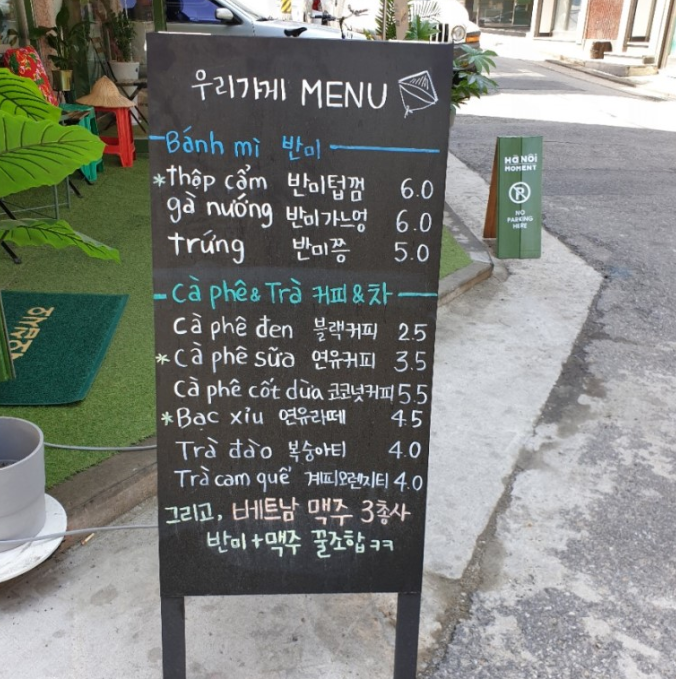 우리가게 MENU
Bánh mì 반미
*thập cẩm 반미텁껌 6.0
gà nướng 반미가느엉 6.0
trứng 반미쯩 5.0
cà phê & Trà 커피 & 차
cà phê đen 블랙커피 2.5
*cà phê sữa 연유커피 3.5
cà phê cốt dừa 코코넛커피 5.5
*Bạc xỉu 연유라떼 4.5
Trà đào 복숭아티 4.0
Trà cam quế 계피오렌지티 4.0
그리고, 베트남 맥주 3총사
반미+맥주 꿀조합ㅋㅋ
HaNoi
MOMENT
P
NO
PARKING
HERE